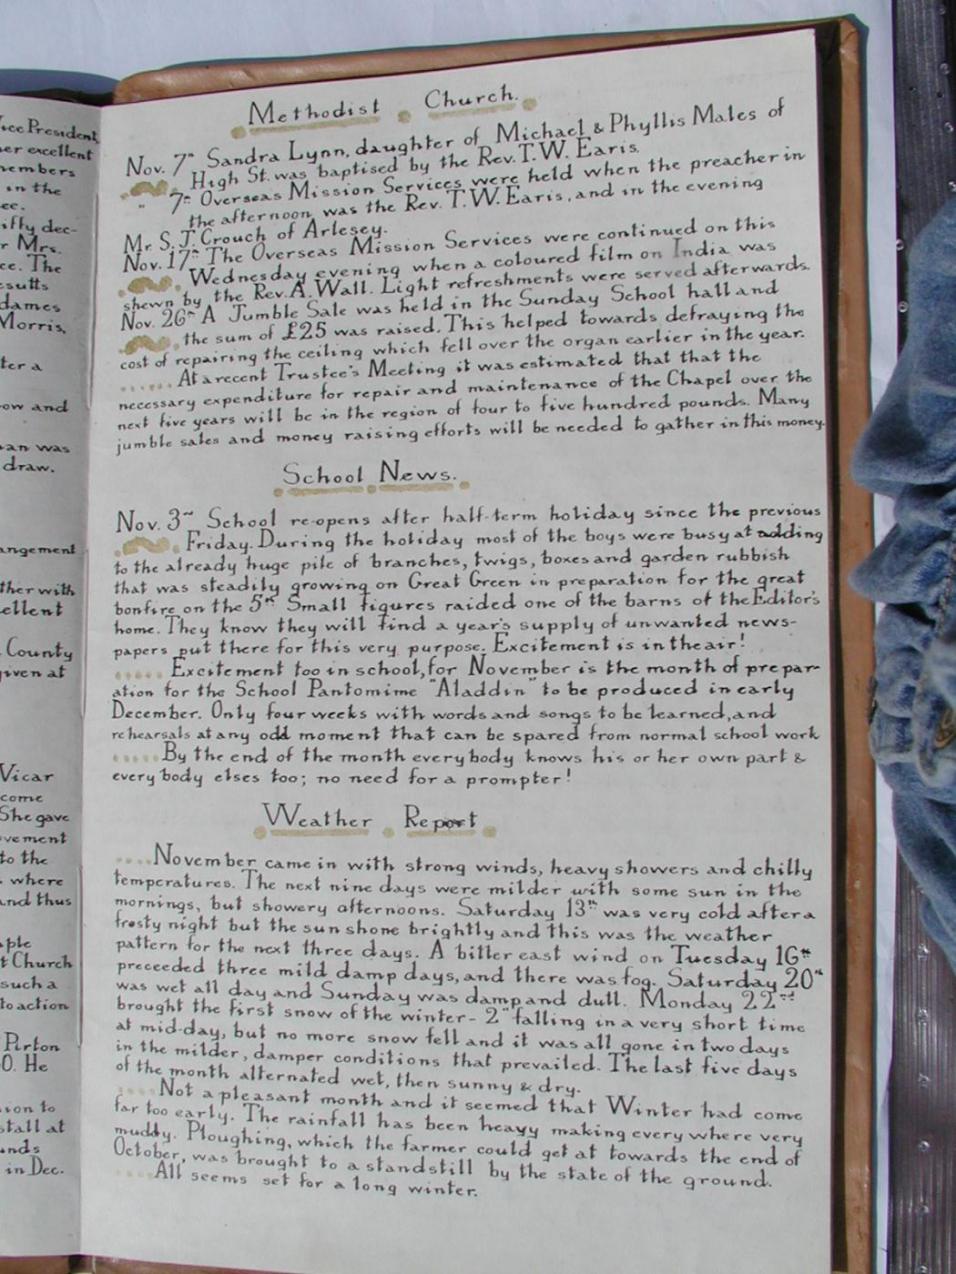 ice President,
er excellent
members
in the
ee.
iffy dec-
r Mrs.
ce. The
esutts
dames
Morris,
ter a
ow and
an was
draw.
angement
ther with
ellent
County
given at
Vicar
come
She gave
vement
to the
where
and thus
ple
t Church
such a
to action
Pirton
0. He
ion to
stall at
unds
in Dec.
Methodist Church.
Nov. 7th Sandra Lynn, daughter of Michael & Phyllis Males of
High St. was baptised by the Rev. T. W. Earis.
" 7th Overseas Mission Services were held when the preacher in
the afternoon was the Rev. T. W. Earis, and in the evening
Mr. S. J. Crouch of Arlesey.
Nov. 17th The Overseas Mission Services were continued on this
Wednesday evening when a coloured film on India was
shewn by the Rev. A. Wall. Light refreshments were served afterwards.
Nov. 26th A Jumble Sale was held in the Sunday School hall and
the sum of £25 was raised. This helped towards defraying the
cost of repairing the ceiling which fell over the organ earlier in the year.
...... At a recent Trustee's Meeting it was estimated that that the
necessary expenditure for repair and maintenance of the Chapel over the
next five years will be in the region of four to five hundred pounds. Many
jumble sales and money raising efforts will be needed to gather in this money.
School News.
Nov. 3rd School re-opens after half-term holiday since the previous
Friday. During the holiday most of the boys were busy at adding
to the already huge pile of branches, twigs, boxes and garden rubbish
that was steadily growing on Great Green in preparation for the great
bonfire on the 5th Small figures raided one of the barns of the Editor's
home. They know they will find a year's supply of unwanted news-
papers put there for this very purpose. Excitement is in the air!
..... Excitement too in school, for November is the month of prepar-
ation for the School Pantomime "Aladdin" to be produced in early
December. Only four weeks with words and songs to be learned, and
rehearsals at any odd moment that can be spared from normal school work
..... By the end of the month everybody knows his or her own part &
everybody elses too; no need for a prompter!
Weather Report
.... November came in with strong winds, heavy showers and chilly
temperatures. The next nine days were milder with some sun in the
mornings, but showery afternoons. Saturday 13th was very cold after a
frosty night but the sun shone brightly and this was the weather
pattern for the next three days. A bitter east wind on Tuesday 16th
preceeded three mild damp days, and there was fog. Saturday 20th
was wet all day and Sunday was damp and dull. Monday 22nd
brought the first snow of the winter - 2" falling in a very short time
at mid-day, but no more snow fell and it was all gone in two days
in the milder, damper conditions that prevailed. The last five days
of the month alternated wet, then sunny & dry.
.... Not a pleasant month and it seemed that Winter had come
far too early. The rainfall has been heavy making every where very
muddy. Ploughing, which the farmer could get at towards the end of
October, was brought to a standstill by the state of the ground.
.... All seems set for a long winter.